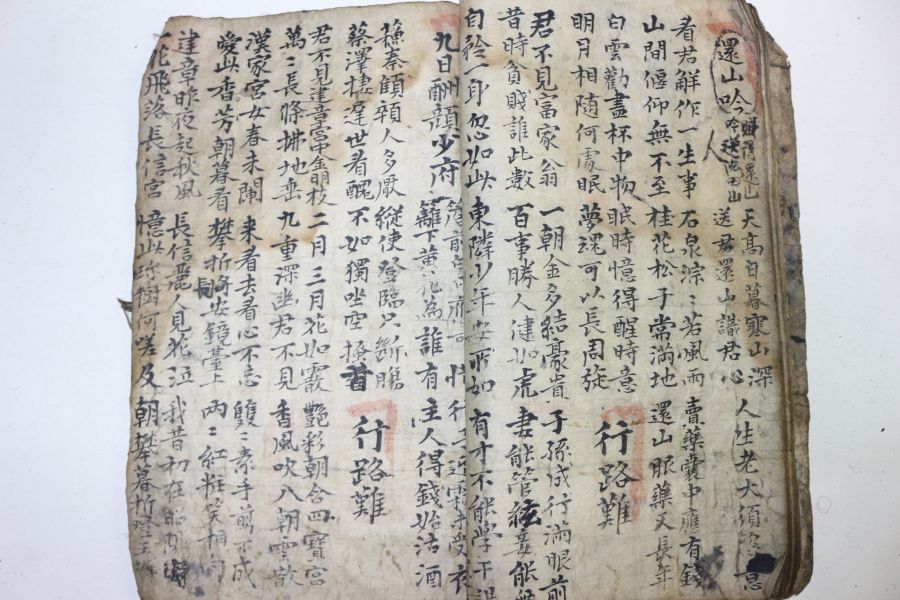 還山吟 天高日暮寒山深 人生老大須恣意
送君還山識君心
看君解作一生事 石泉淙〻若風雨 賣藥囊中應有錢
山間偃仰無不至 桂花松子常滿地 還山服藥又長年
白雲勸盡杯中物 眠時憶得醒時意
明月相随何處眠 夢魂可以長周旋 行路難
君不見富家翁 一朝金多結豪貴 子孫成行滿眼前
昔時貧賤誰比數 百事勝人健如虎 妻能管絃妾能
自矜一身忽如此 東隣少年安所如 有才不能學干
簷前 行子迎霜未受衣
九日酬顔少府 籬下黃花為誰有 主人得錢始沽酒
蘓秦顦顇人多厭 縱使登臨只斷腸
蔡澤棲遲世看醜 不如獨坐空搔首 行路難
君不見建章宮中金明枝 二月三月花如霰 艷彩朝含四寶宮
萬〻長條拂地垂 九重深幽君不見 香風吹入朝雲殿
漢家宮女春未闌 來看去看心不忘 雙〻素手剪不成
愛此香芳朝暮看 攀折將安鏡臺上 兩〻紅粧笑相向
建章昨夜起秋風 長信麗人見花泣 我昔初在昭陽時
一花飛落長信宮 憶此珍樹何嗟及 朝攀暮折登